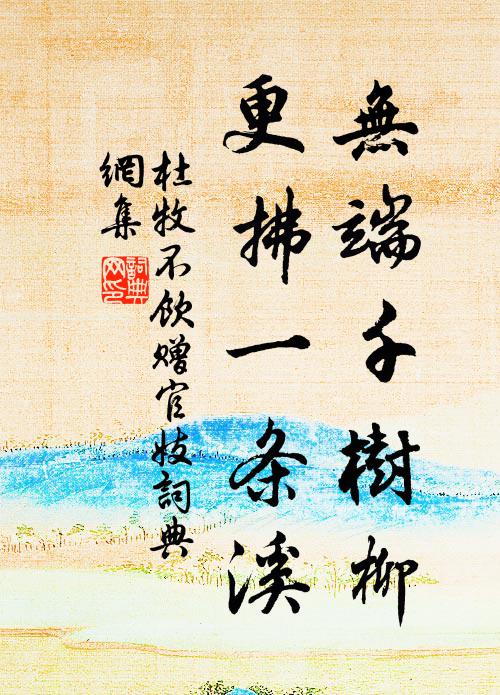 無端千樹柳
更拂一条溪
杜牧不飲贈官妓詞典
網集
詞典網印